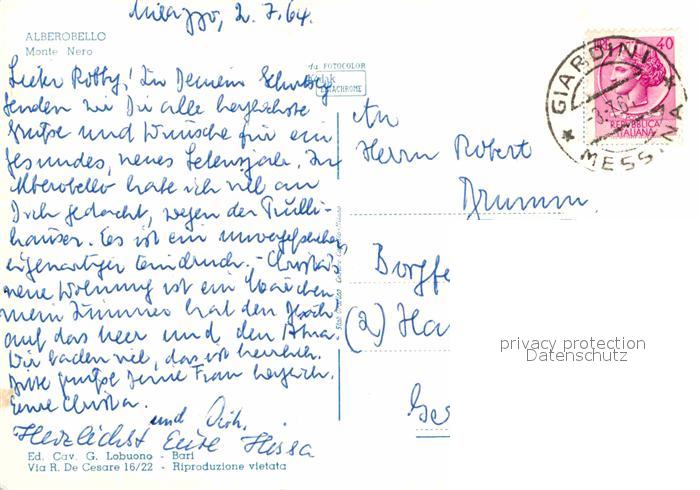 Milazzo, 2.7.64.
ALBEROBELLO
Monte Nero
Lieber Robby! Zu Deinem
senden wir Dir alle herzlichste
Grüsse und Wünsche für ein
gesundes, neues Lebensjahr. In
Alberobello habe ich viel an
Dich gedacht, wegen der Trulli-
häuser. Es ist ein unvergesslicher
eigenartiger Eindruck. - Christa's
neue Wohnung ist ein
mein Zimmer hat den
auf das Meer und den Ätna.
Wir baden viel, das ist herrlich.
Bitte grüsse Deine Frau herzlich.
Eure Christa.
und Dich.
Herzlichst Eure Hessa
Ed. Cav. G. Lobuono - Bari
Via R. De Cesare 16/22 - Riproduzione vietata
da FOTOCOLOR
Kodak
EKTACHROME
An
Herrn Robert
Brumm.
Borgfe
(2) Ha
Ges
40
REPUBBLICA
ITALIANA
GIARDINI
MESSINA
privacy protection
Datenschutz